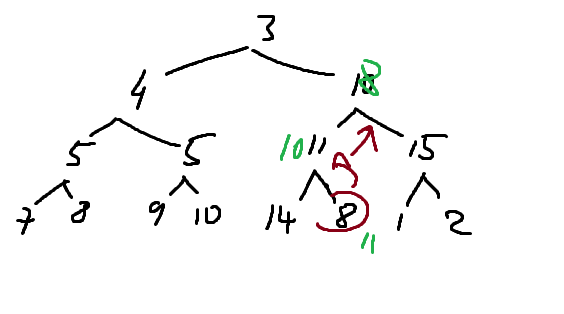 3
4 10 8
5 5 10 11 15
7 8 9 10 14 8 1 2
11